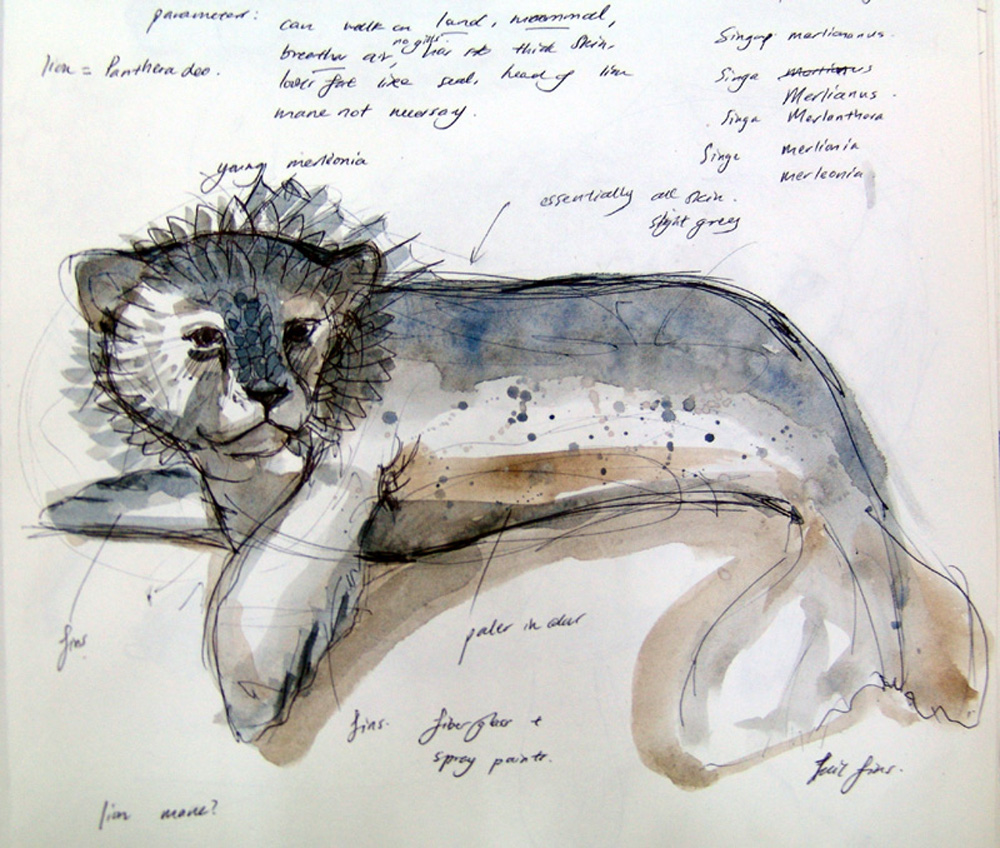 parameters:
can walk on land, mammal,
breathes air, no gills. has thick skin.
lower fat like seal, head of lion
mane not necessary.
lion = Panthera Leo.
Singap merlionanus.
Singa Merlianus.
Singa Merlanthera
Singa merlionia
merleonia
young merleonia
essentially all skin.
slight grey
fins
paler in colour
fins. fiberglass +
spray paints.
tail fins.
lion mane?